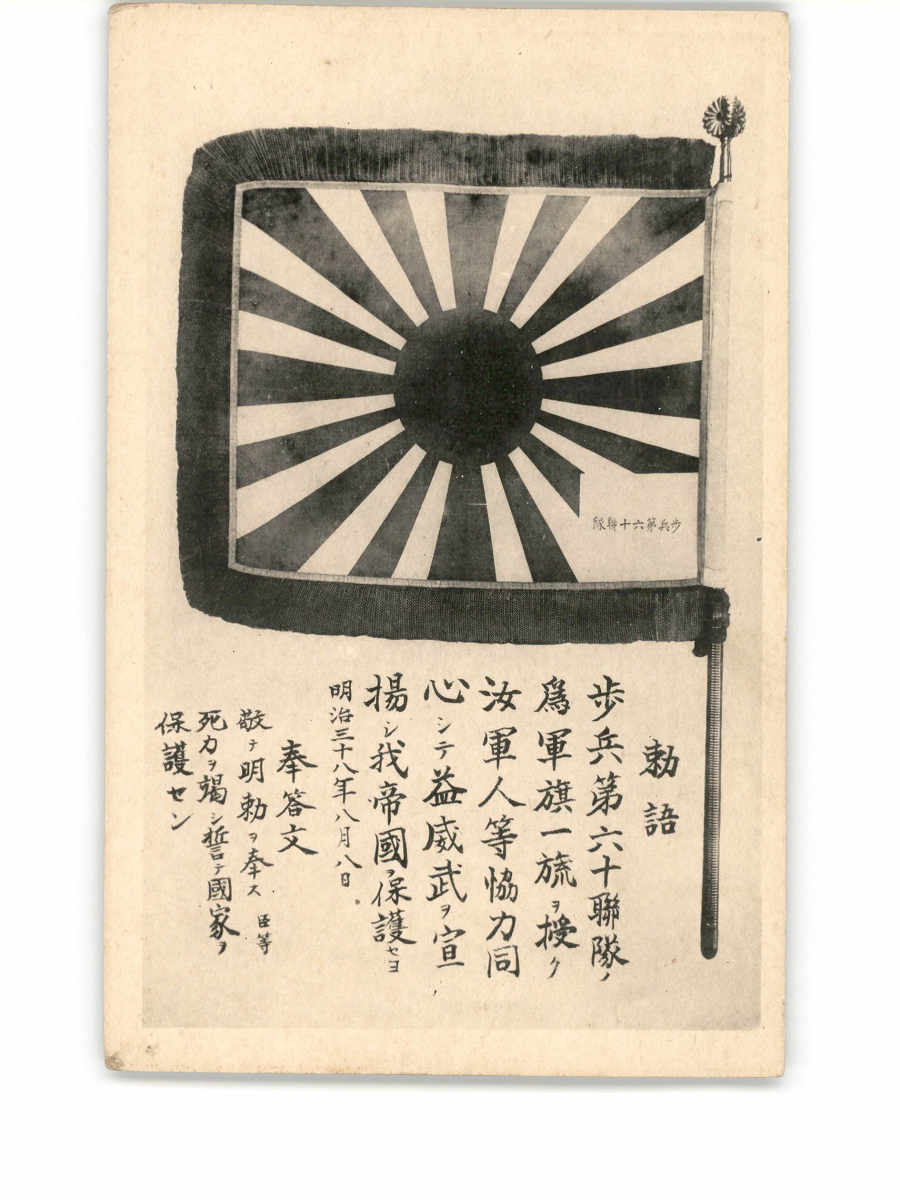 歩兵第六十聯隊
勅語
歩兵第六十聯隊ノ
爲軍旗一旒ヲ授ク
汝軍人等協力同
心シテ益威武ヲ宣
揚シ我帝國ヲ保護セヨ
明治三十八年八月八日
奉答文
敬テ明勅ヲ奉ス 臣等
死力ヲ竭シ誓テ國家ヲ
保護セン